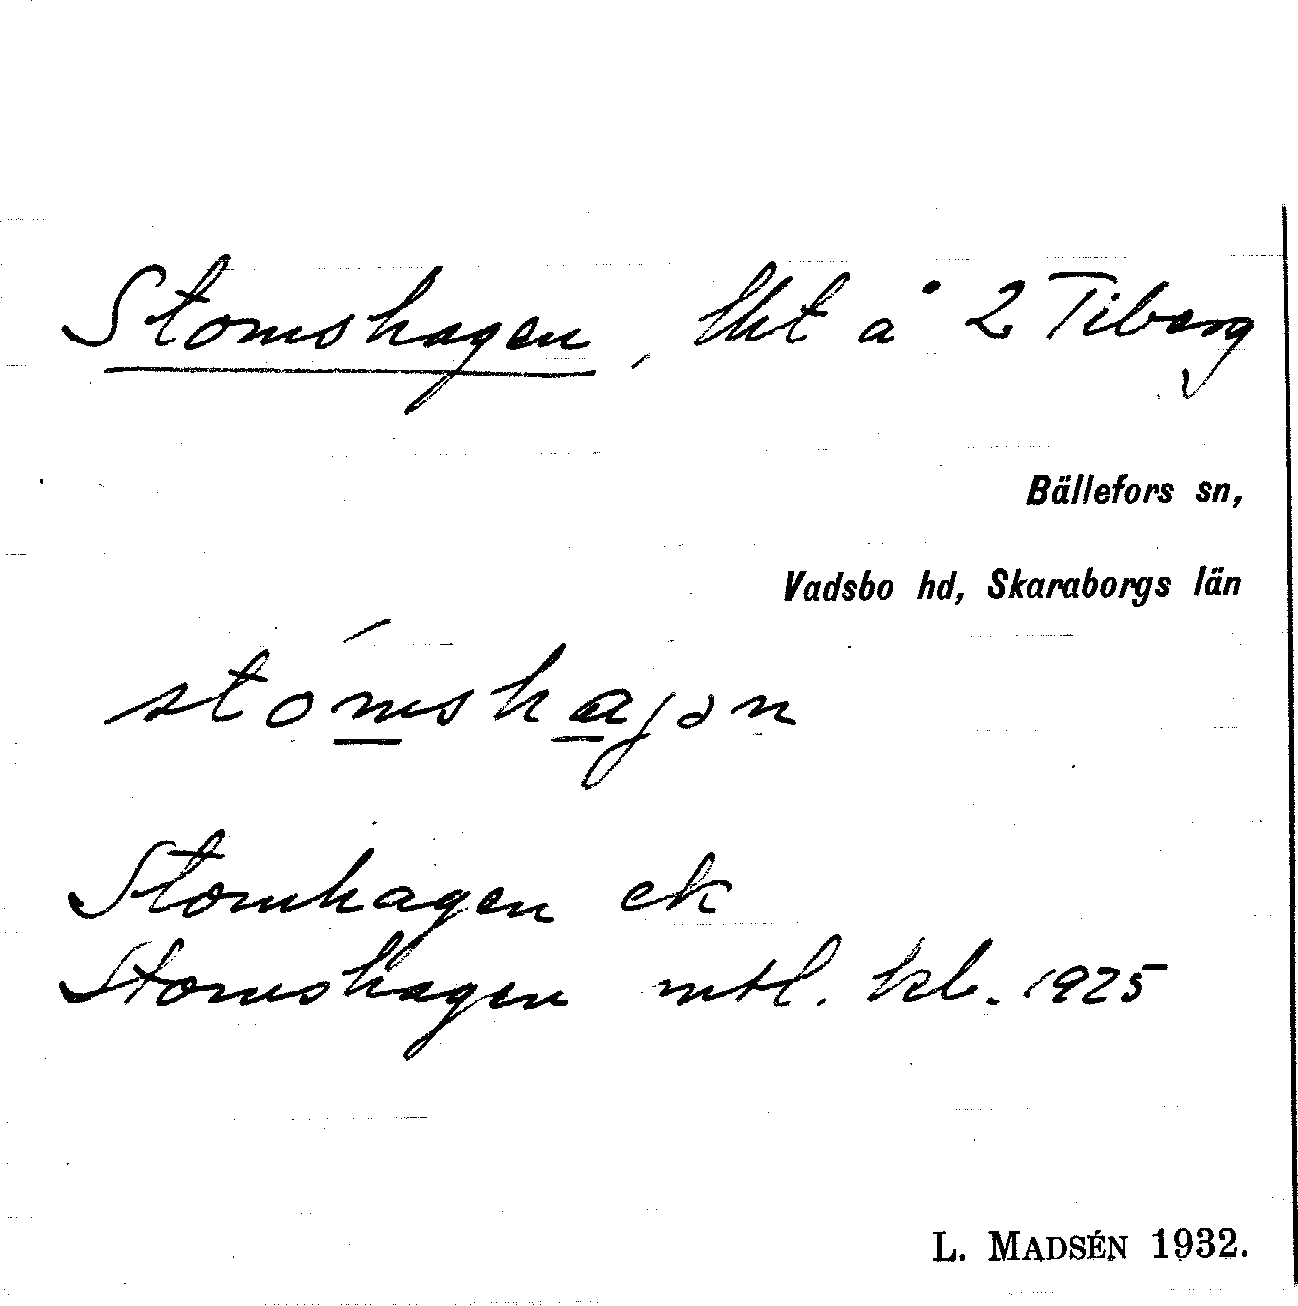 Stomshagen, lht å 2 Tiborg
Bällefors sn,
Vadsbo hd, Skaraborgs län
stómshajən
Stomhagen ek
Stomshagen mtl. kb. 1925
L. MADSÉN 1932.